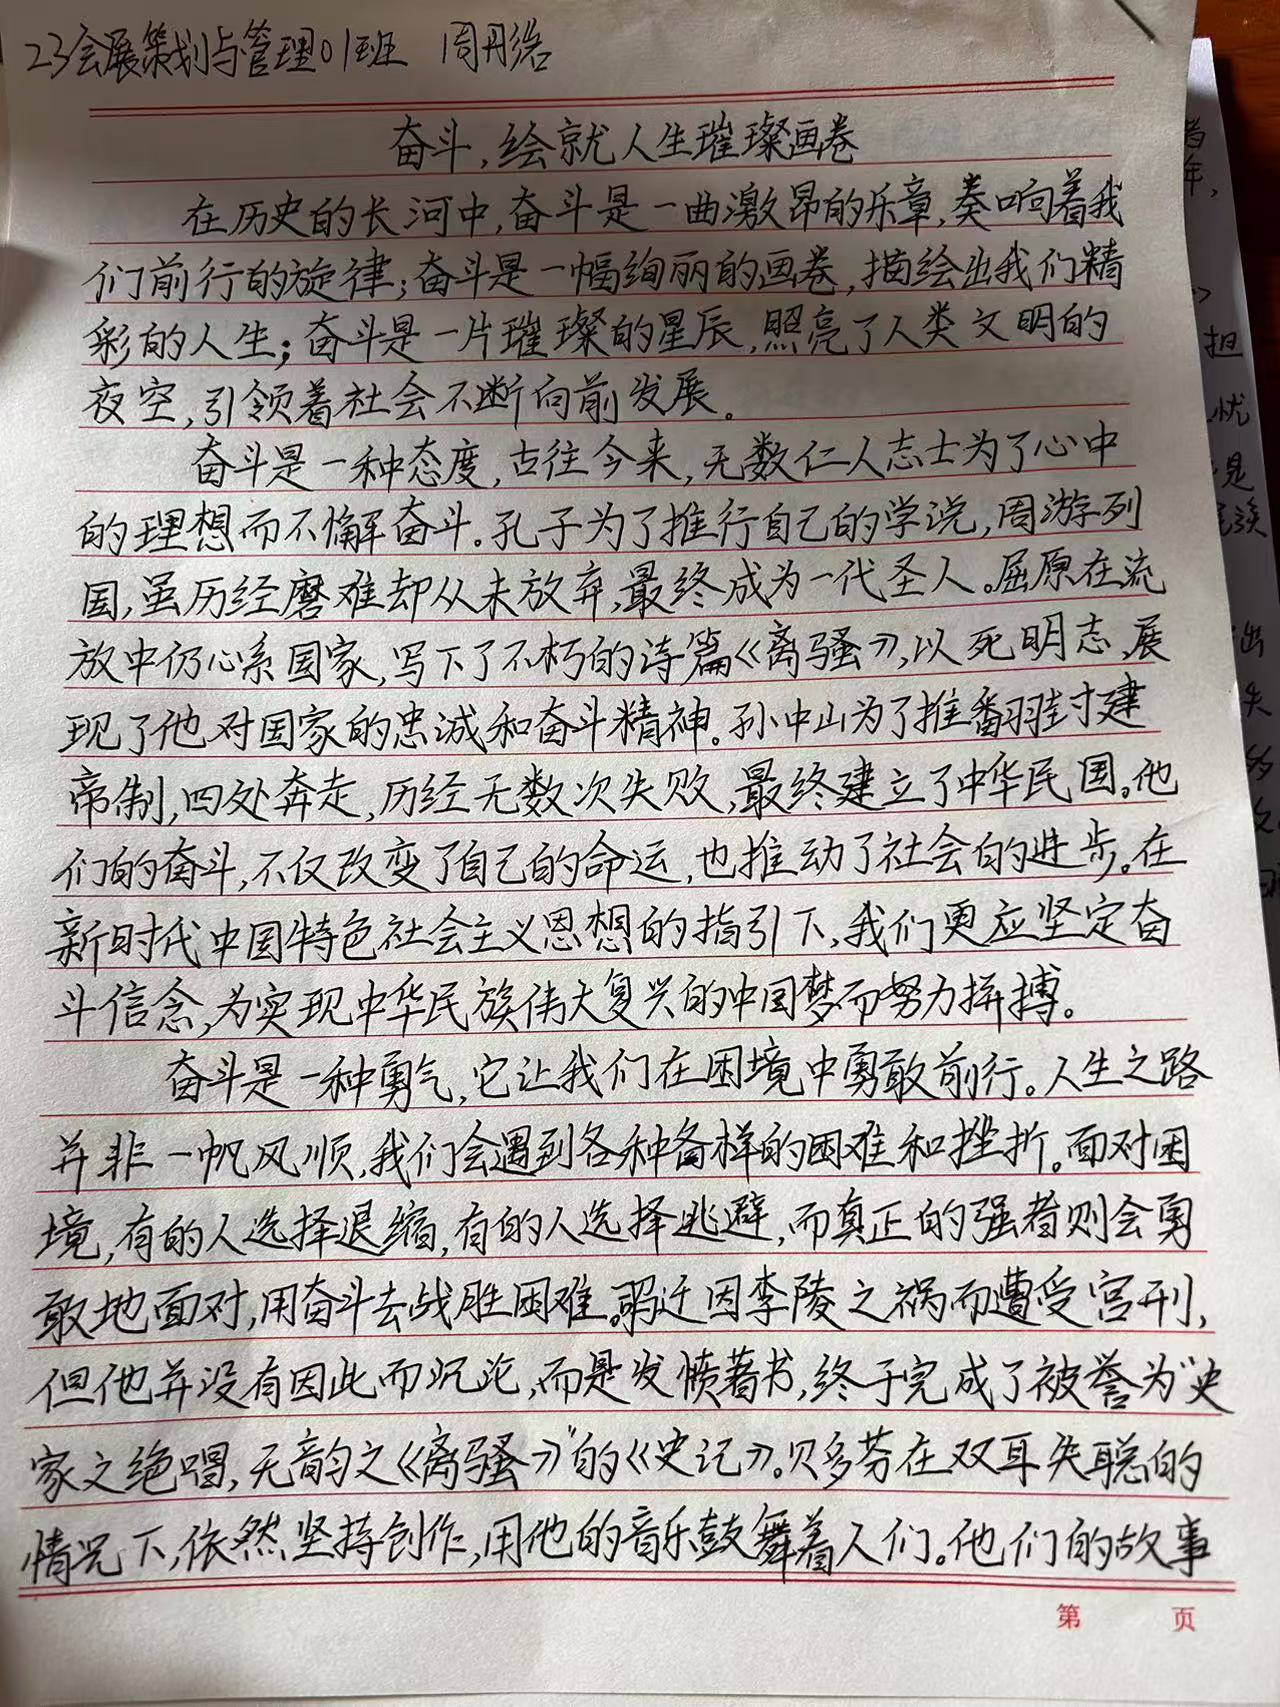 23会展策划与管理01班 周丹
奋斗,绘就人生璀璨画卷
在历史的长河中,奋斗是一曲激昂的乐章,奏响着我
们前行的旋律;奋斗是一幅绚丽的画卷,描绘出我们精
彩的人生;奋斗是一片璀璨的星辰,照亮了人类文明的
夜空,引领着社会不断向前发展。
奋斗是一种态度,古往今来,无数仁人志士为了心中
的理想而不懈奋斗。孔子为了推行自己的学说,周游列
国,虽历经磨难却从未放弃,最终成为一代圣人。屈原在流
放中仍心系国家,写下了不朽的诗篇《离骚》,以死明志,展
现了他对国家的忠诚和奋斗精神。孙中山为了推翻封建
帝制,四处奔走,历经无数次失败,最终建立了中华民国。他
们的奋斗,不仅改变了自己的命运,也推动了社会的进步。在
新时代中国特色社会主义思想的指引下,我们更应坚定奋
斗信念,为实现中华民族伟大复兴的中国梦而努力拼搏。
奋斗是一种勇气,它让我们在困境中勇敢前行。人生之路
并非一帆风顺,我们会遇到各种各样的困难和挫折。面对困
境,有的人选择退缩,有的人选择逃避,而真正的强者则会勇
敢地面对,用奋斗去战胜困难。司马迁因李陵之祸而遭受宫刑,
但他并没有因此而沉沦,而是发愤著书,终于完成了被誉为“史
家之绝唱,无韵之《离骚》”的《史记》。贝多芬在双耳失聪的
情况下,依然坚持创作,用他的音乐鼓舞着人们。他们的故事
第 页
担
忧
是
出